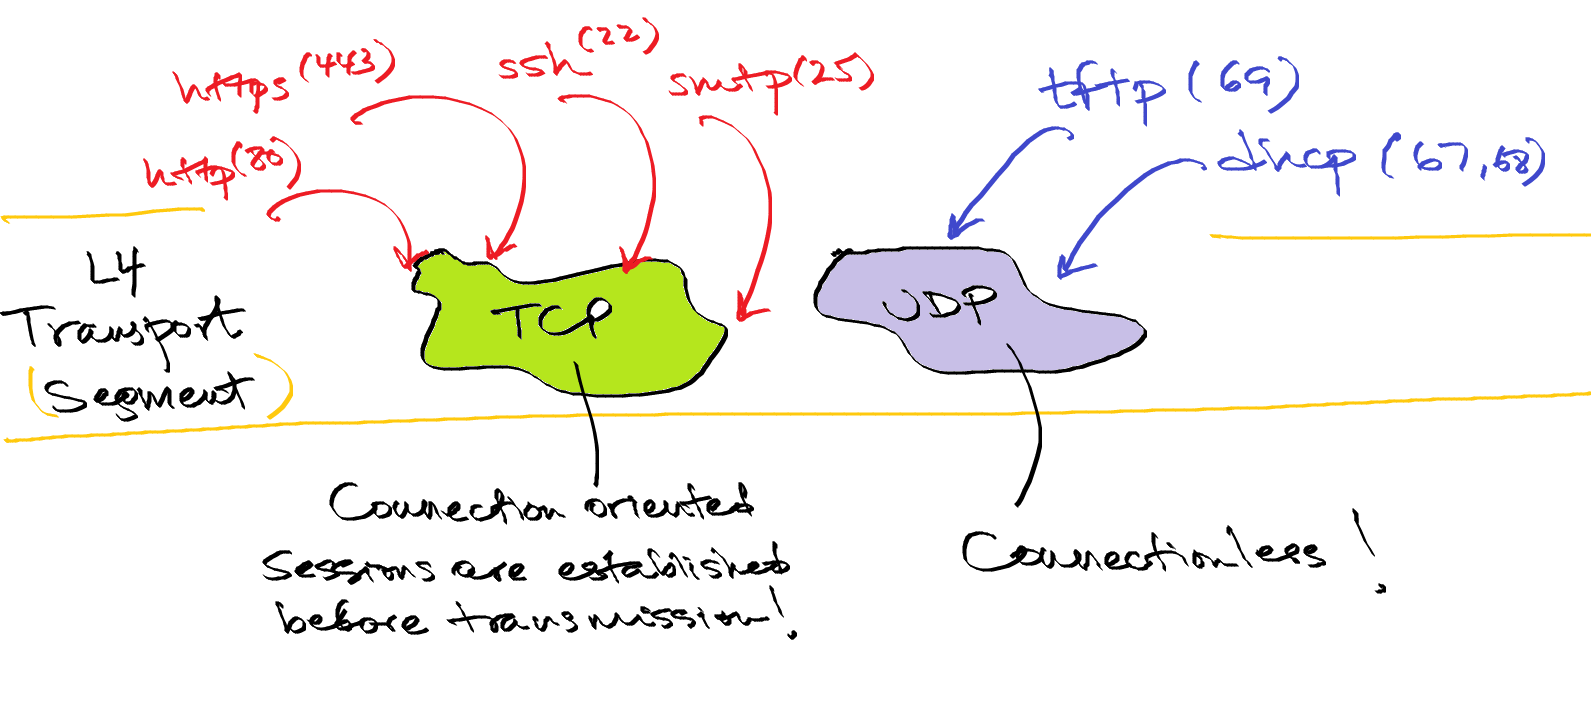 https (443)
ssh (22)
smtp (25)
http (80)
tftp (69)
dhcp (67,68)
L4
Transport
(Segment)
TCP
UDP
Connection oriented
sessions are established
before transmission!
Connectionless!